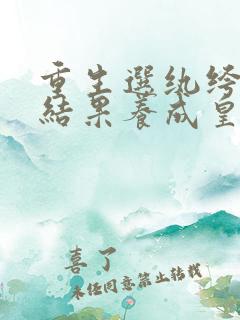 重生選紈絝
結果養成皇
喜了
未經同意禁止轉載